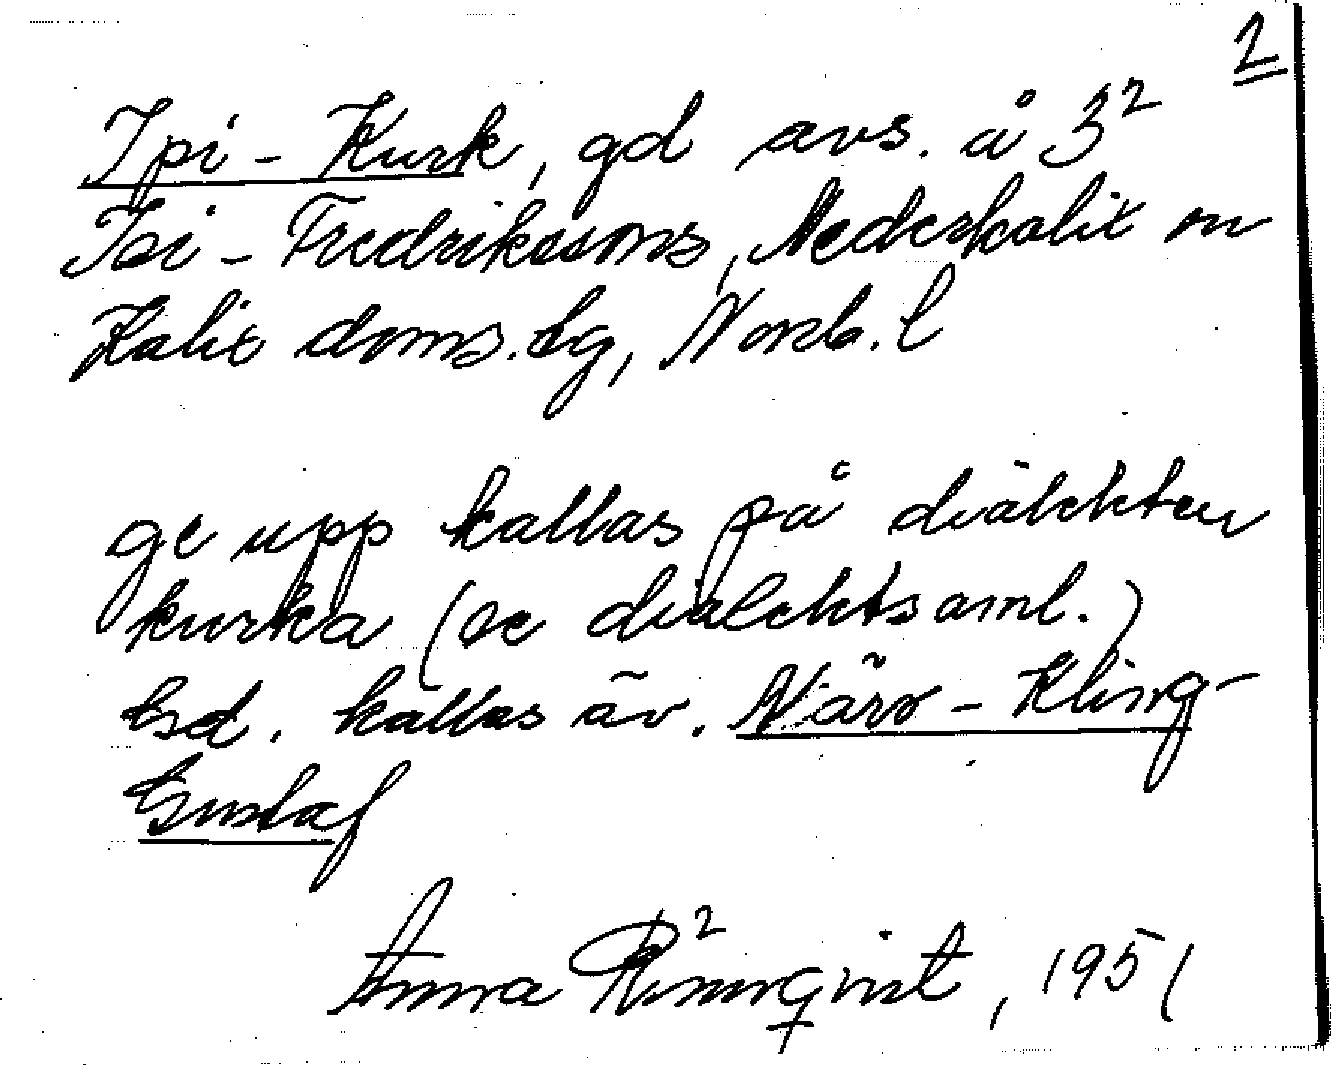 2
Ipi - Kurk, gd avs. å 3²
Isi - Fredrikssons, Nederkalix sn
Kalix doms.bg, Norrb. l
ge upp kallas på dialekten
kurka (se dialektsaml.)
Gsd. kallas äv. Närv - Kling-
Gustaf
Anna Rönnqvist, 1951